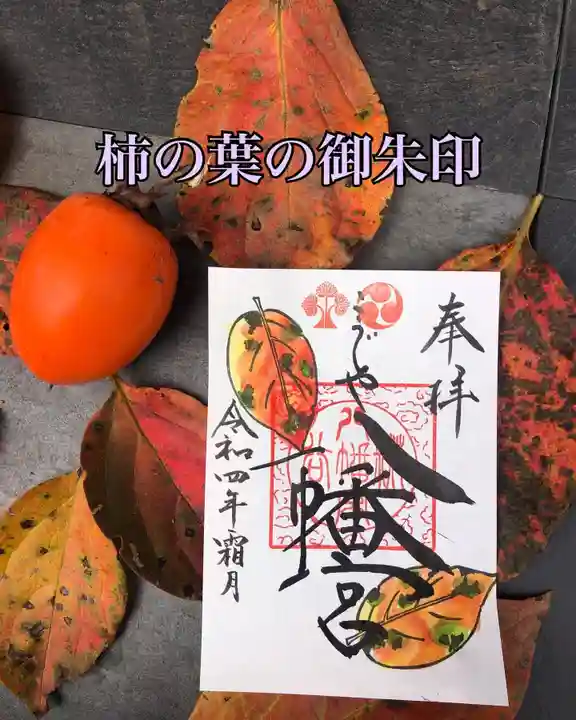 柿の葉の御朱印
奉拝
八幡宮
令和四年霜月